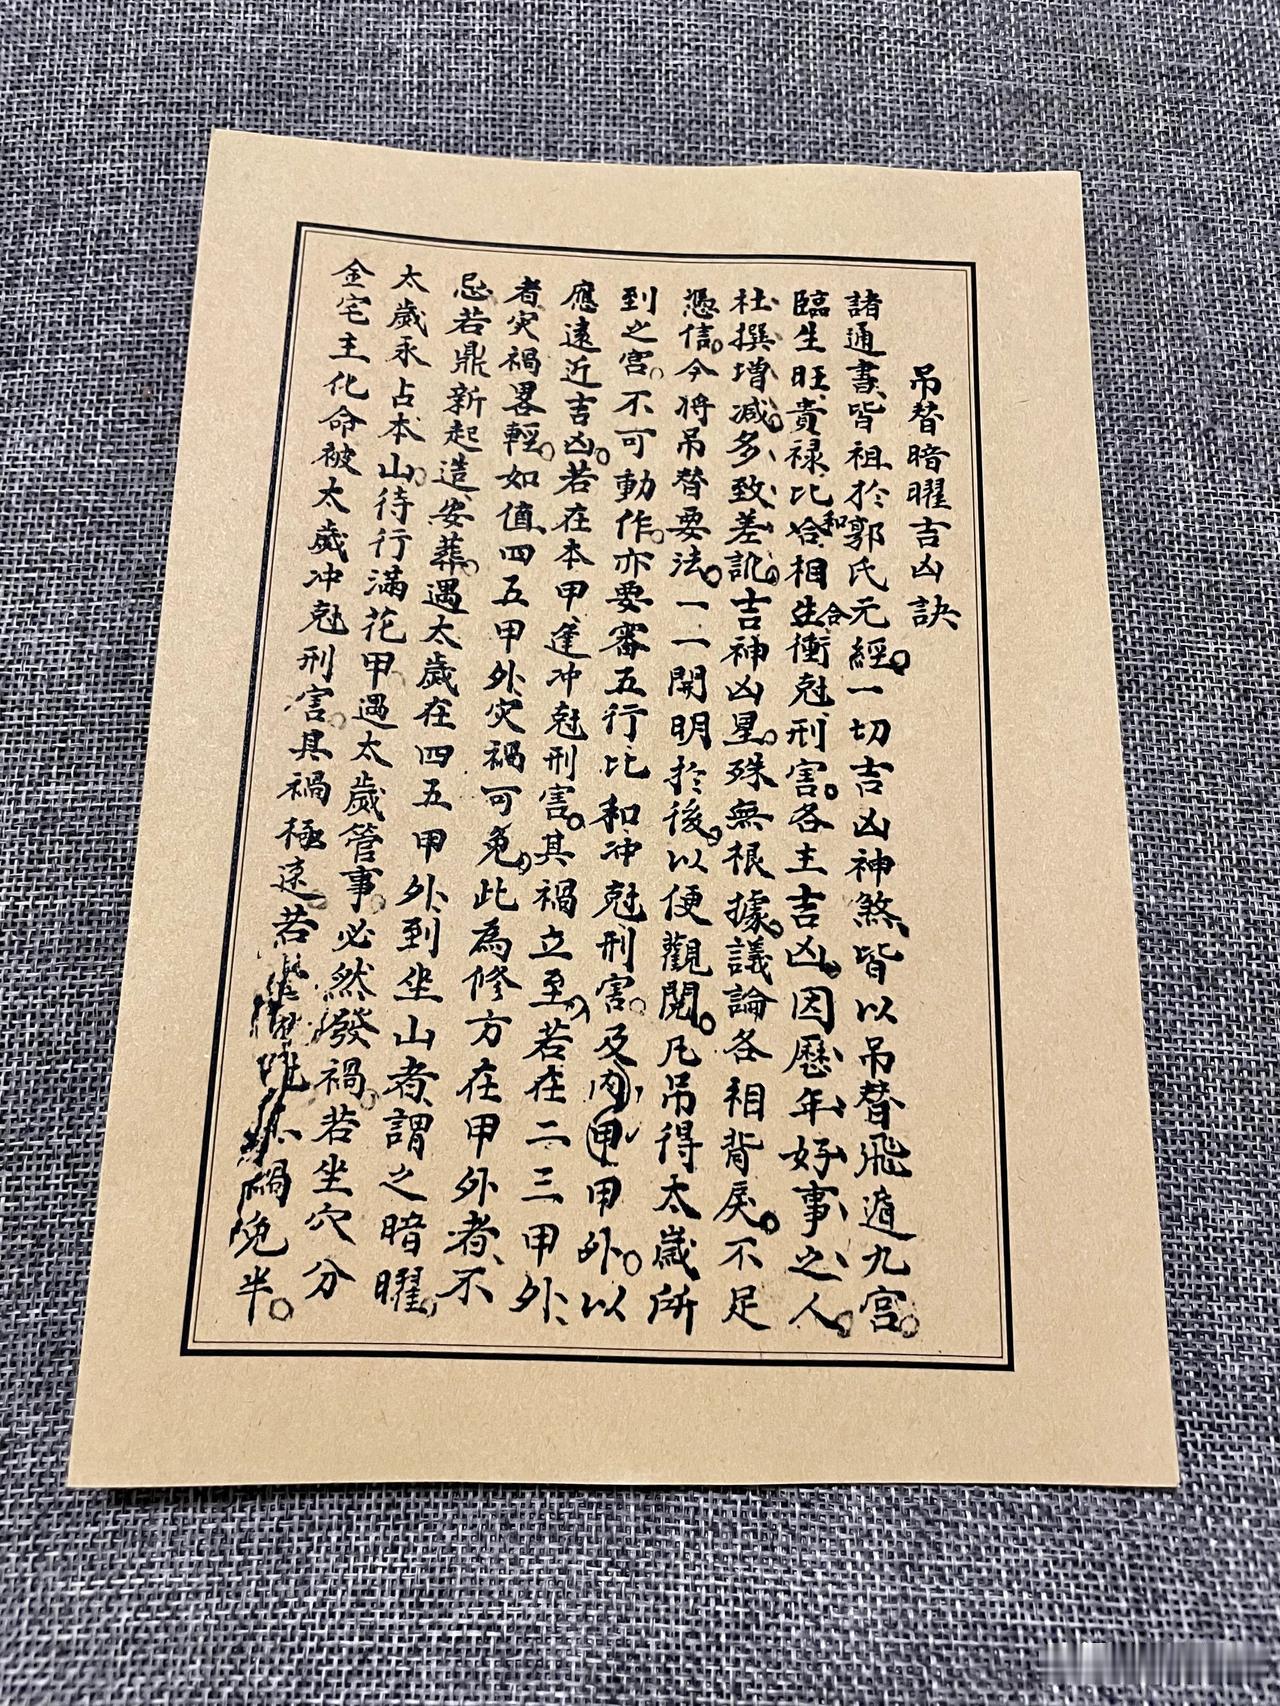 吊替暗曜吉凶訣
諸通書皆祖於郭氏元經。一切吉凶神煞皆以吊替飛遁九宮。
臨生旺貴祿比和相合衝尅刑害。各主吉凶。因歷年好事之人。
杜撰增减。多致差訛。吉神凶星。殊無根據。議論各相背戾。不足
憑信。今將吊替要法。一一開明於後。以便觀閱。凡吊得太歲所
到之宮。不可動作。亦要審五行比和冲尅刑害。及內甲甲外。以
應遠近吉凶。若在本甲逢冲尅刑害。其禍立至。若在二三甲外
者灾禍畧輕。如值四五甲外灾禍可免。此為修方在甲外者不
忌若鼎新起造安葬。遇太歲在四五甲外到坐山者謂之暗曜。
太歲永占本山。待行滿花甲遇太歲管事。必然發禍。若坐穴分
金宅主化命被太歲冲尅刑害。其禍極速。若
禍免半。